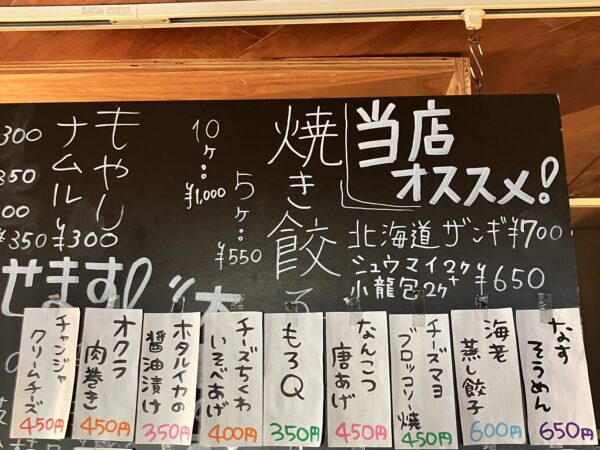 当店
オススメ!
北海道ザンギ ¥700
シュウマイ2ケ+
小龍包2ケ ¥650
焼き餃子
5ヶ: ¥550
10ヶ: ¥1,000
もやし
ナムル ¥300
¥350
せます!
なす
そうめん
650円
海老
蒸し餃子
600円
チーズマヨ
ブロッコリー焼
450円
なんこつ
唐あげ
450円
もろQ
350円
チーズちくわ
いそべあげ
400円
ホタルイカの
醤油漬け
350円
オクラ
肉巻き
450円
チャンジャ
クリームチーズ
450円